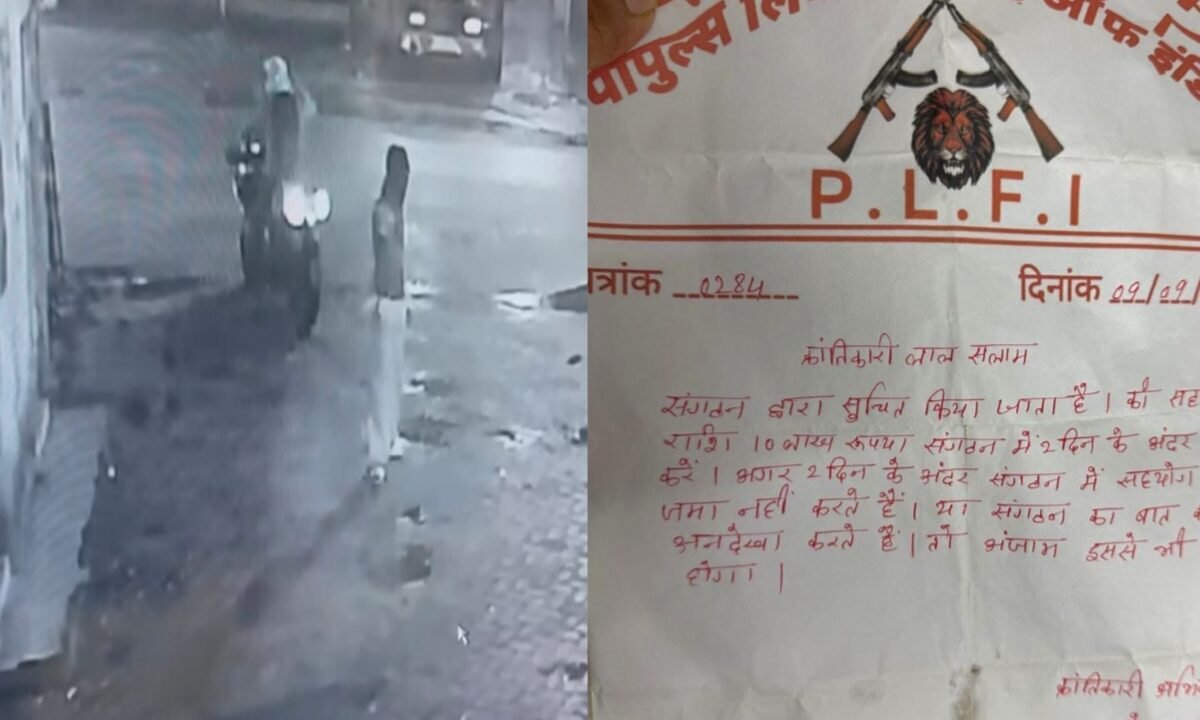 पापुल्स लि ऑफ इंडि
P.L.F.I
त्रांक 0284 दिनांक 09/09/
क्रांतिकारी लाल सलाम
संगठन द्वारा सुचित किया जाता है। की सह
राशि 10 लाख रूपया संगठन में 2 दिन के अंदर
करें। अगर 2 दिन के अंदर संगठन में सहयोग
जमा नहीं करते हैं। या संगठन का बात क
अनदेखा करते हैं। तो अंजाम इससे भी
होगा।
क्रांतिकारी अभि